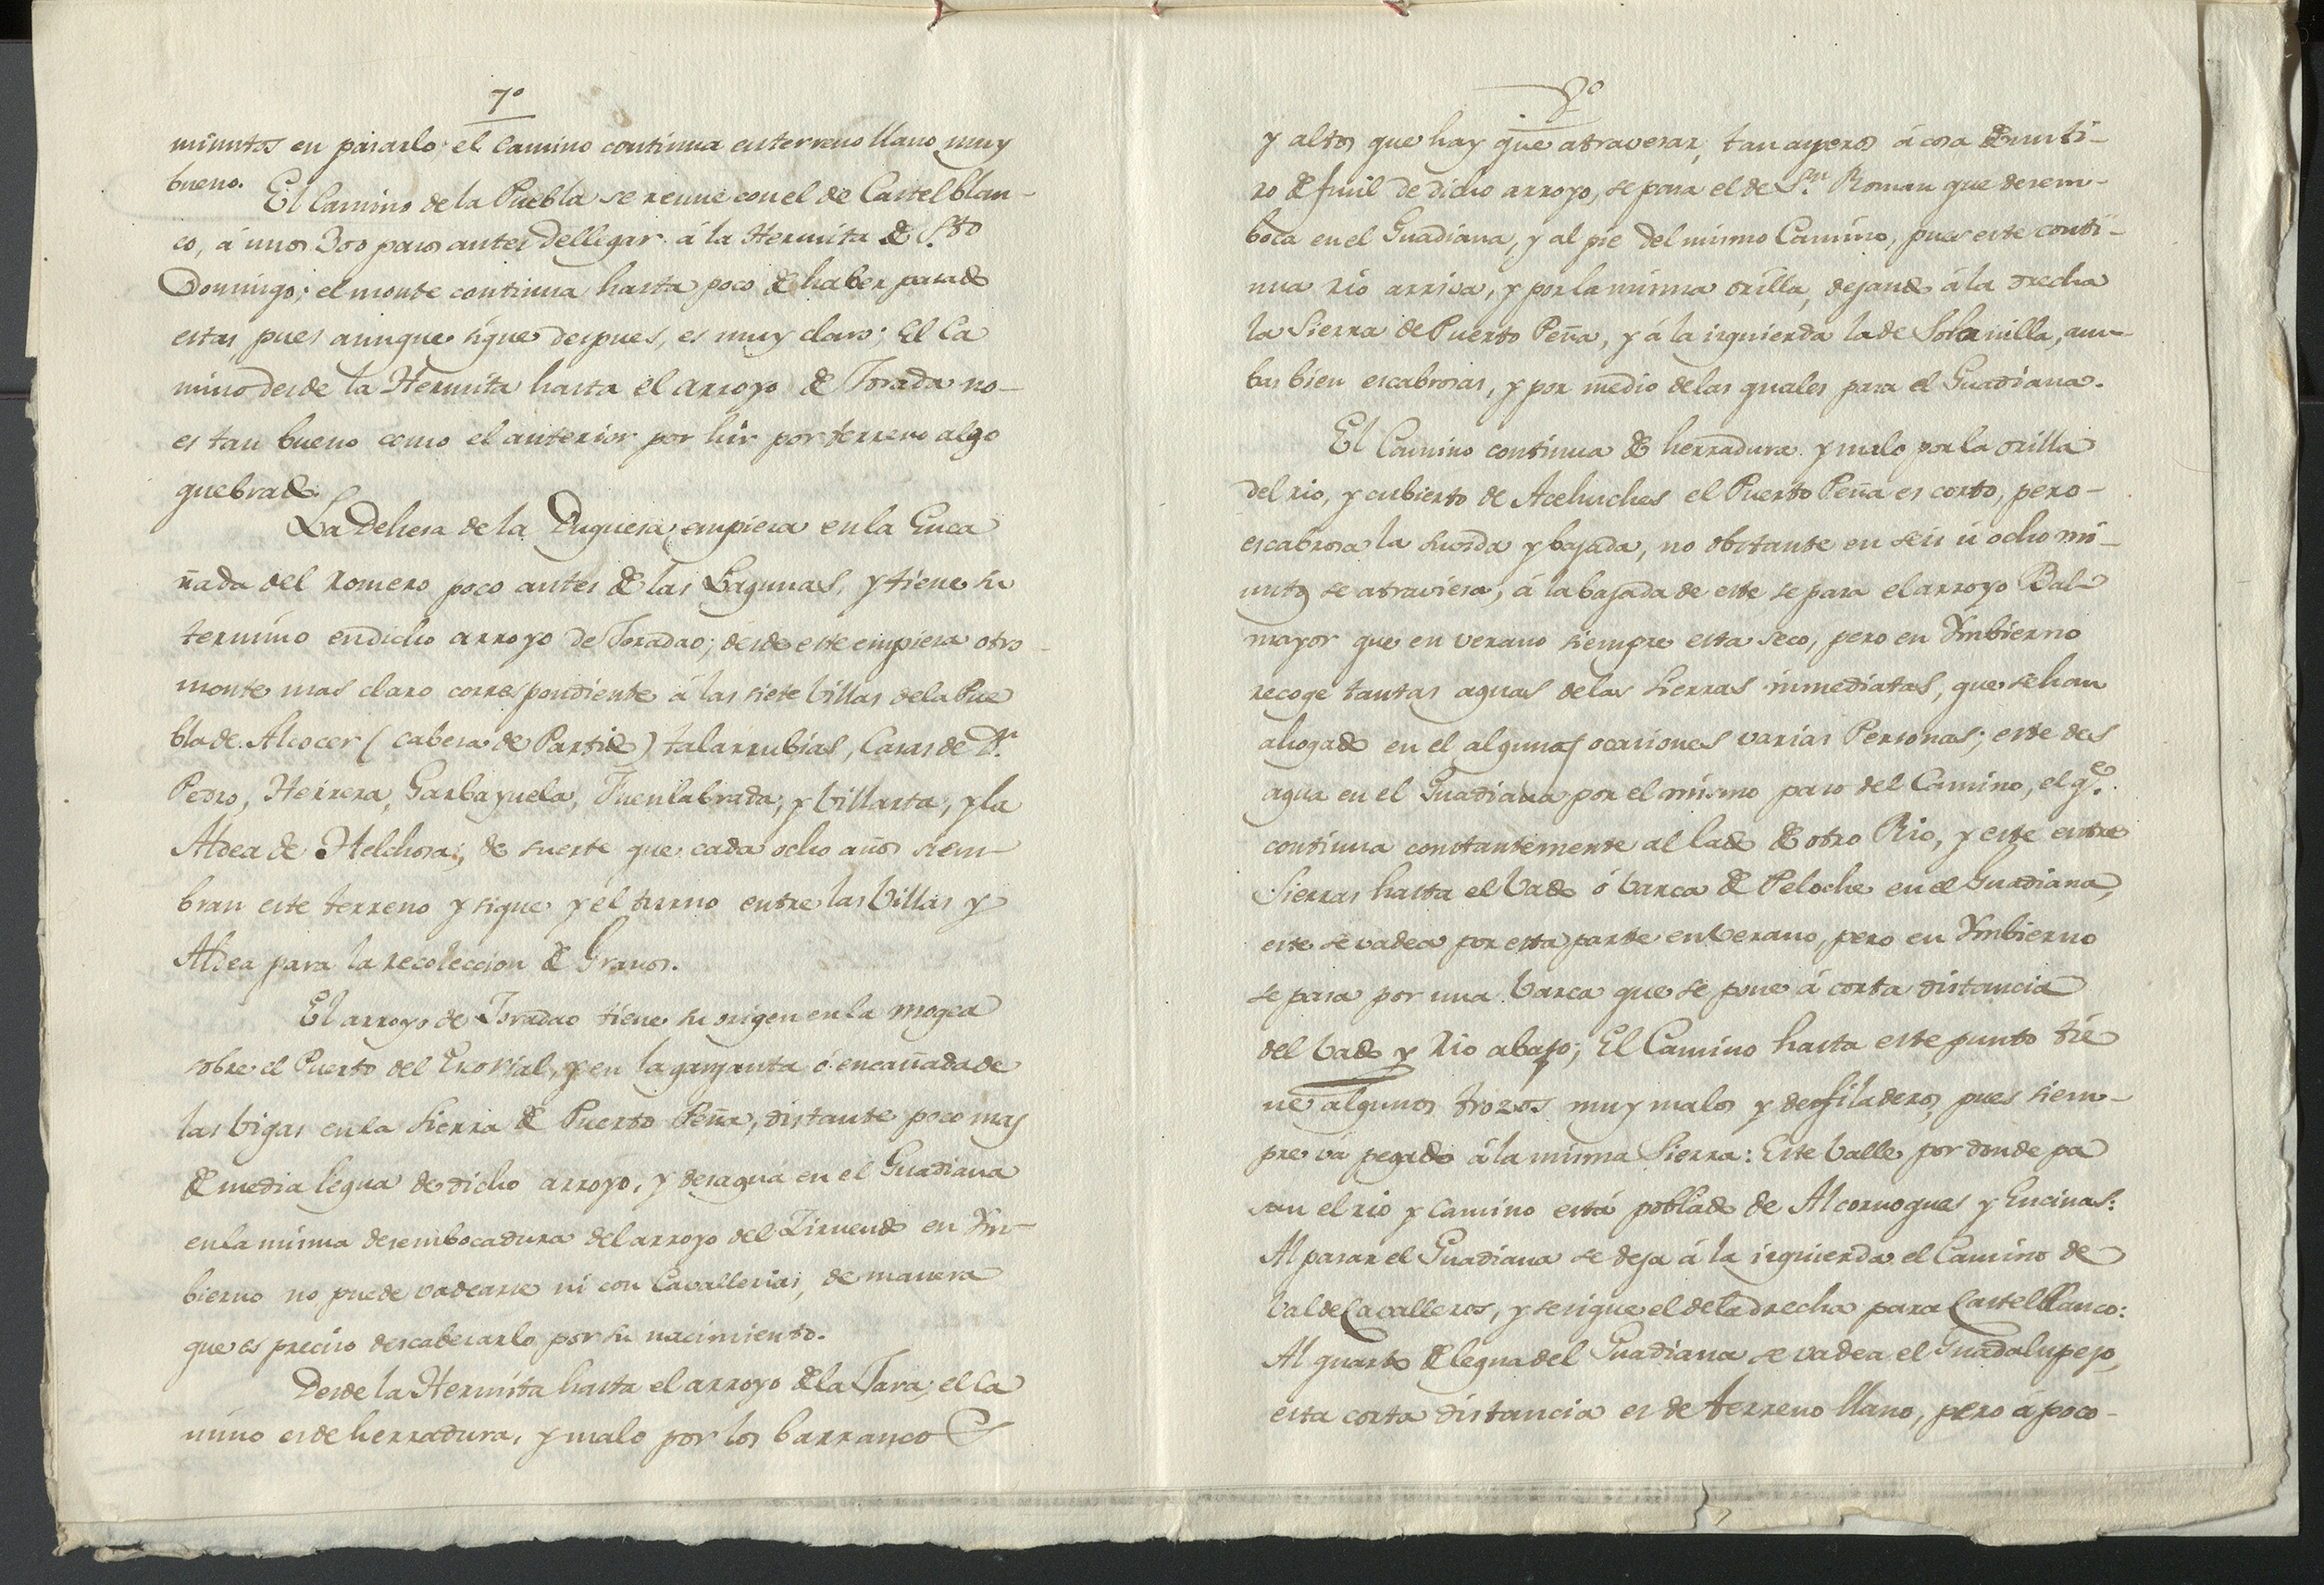 7º
minutos en pasarlo: el camino continua en terreno llano muy
bueno.
El Camino de la Puebla se reune con el de Castelblan-
co, á unos 300 pasos antes de llegar á la Hermita de Sto
Domingo; el monte continua hasta poco de haber pasado
estas, pues aunque sigue despues, es muy claro; El Ca
mino desde la Hermita hasta el arroyo de Torada no-
es tan bueno como el anterior por hir por terreno algo
quebrado.
La Dehesa de la Duquesa empiesa en la Enca
ñada del Romero poco antes de las Lagunas, y tiene su
termino en dicho arroyo de Toradao; desde este empiesa otro
monte mas claro correspondiente á las siete Villas de la Pue
bla de Alcocer (Cabesa de Partido) talarrubias, Casas de Dn.
Pedro, Herrera, Garbayuela, Fuenlabrada, y Villarta, y la
Aldea de Helchosa; de suerte que cada ocho años siem-
bran este terreno y sigue y él turno entre las Villas y
Aldea para la recoleccion de Granos.
El arroyo de Toradao tiene su origen en la mogea
sobre el Puerto del Escorial, y en la garganta ó encañada de
las Vigas en la Sierra de Puerto Peña, distante poco mas
de media legua de dicho arroyo, y desagua en el Guadiana
en la misma desembocadura del arroyo del Tiruendo en Ym-
bierno no puede vadearse ni con Cavallerias, de manera
que es preciso descabesarlo por su nacimiento.
Desde la Hermita hasta el arroyo de la Jara, el Ca
mino es de herradura, y malo por los barrancos
8º
y altos que hay que atravesar, tan asperos á cosa de un ti-
ro de fusil de dicho arroyo, se pasa el de Sn. Roman que desem-
boca en el Guadiana, y al pie del mismo Camino, pues este conti-
nua rio arriva, y por la misma orilla, dejando á la drecha
la Sierra de Puerto Peña, y á la izquierda la de Solanilla, am-
bas bien escabrosas, y por medio de las quales pasa el Guadiana.
El Camino continua de herradura y malo por la orilla
del rio, y cubierto de Acebuches el Puerto Peña es corto, pero-
escabrosa la suvida y bajada, no obstante en seis ú ocho mi-
nutos se atraviesa, á la bajada de este se pasa el arroyo Bal-
mayor que en verano siempre esta seco, pero en Ymbierno
recoge tantas aguas de las sierras inmediatas, que se han
ahogado en el algunas ocasiones varias Personas; este des
agua en el Guadiana por el mismo paso del Camino, el qe.
continua constantemente al lado de otro Rio, y este entre
Sierras hasta el Vado ó barca de Peloche en el Guadiana,
este se vadea por esta parte en Verano, pero en Ymbierno
se pasa por una Varca que se pone á corta distancia
del Vado y Rio abajo; El Camino hasta este punto tie
ne algunos trozos muy malos y desfiladeros, pues siem-
pre vá pegado á la misma Sierra: Este Valle por donde pa
san el rio y Camino está poblado de Alcornoques y Encinas:
Al pasar el Guadiana se deja á la izquierda el Camino de
Valdecavalleros, y se sigue el de la drecha para Castelblanco:
Al quarto de legua del Guadiana se vadea el Guadalupejo,
esta corta distancia es de terreno llano, pero á poco-